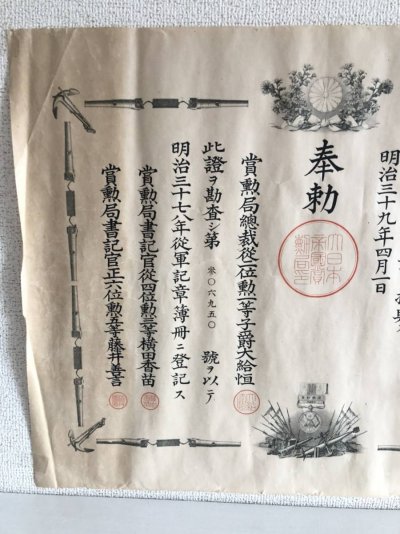 明治三十九年四月一日
奉勅
大日本帝國賞勲局印
賞勲局總裁從二位勲一等子爵大給恒
此證ヲ勘査シ第零〇六九五〇號ヲ以テ
明治三十七八年從軍記章簿冊ニ登記ス
賞勲局書記官從四位勲三等横田香苗
賞勲局書記官正六位勲五等藤井善言